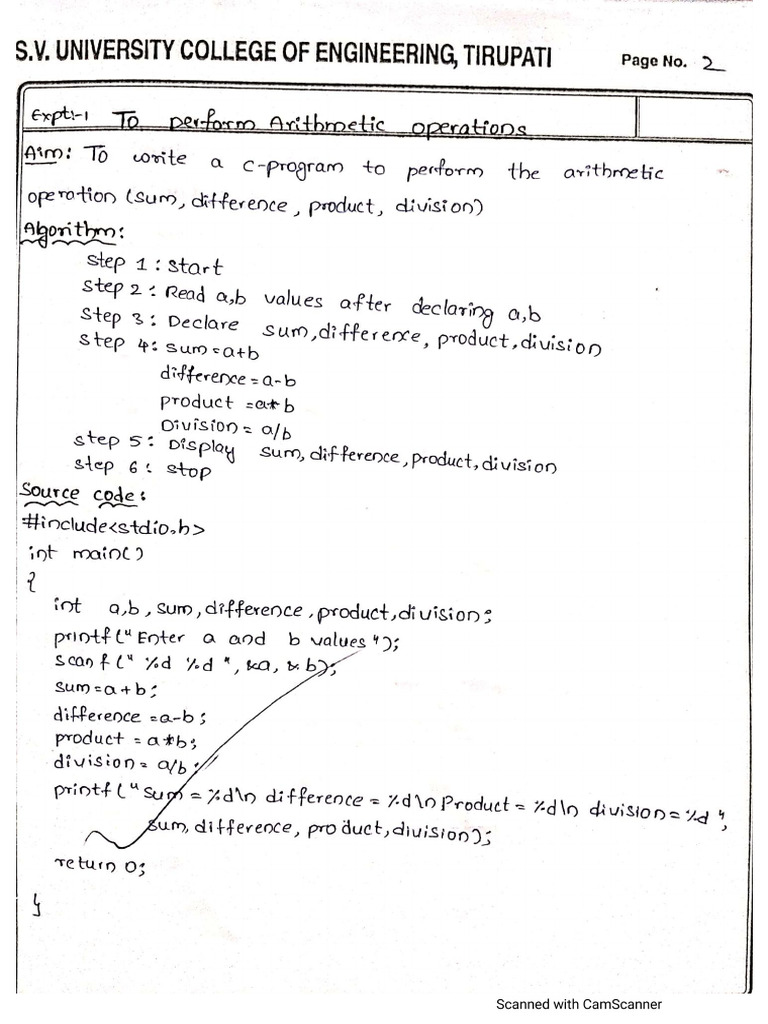 S.V. UNIVERSITY COLLEGE OF ENGINEERING, TIRUPATI Page No. 2
Expt:-1 To perform Arithmetic operations
Aim: To write a c-program to perform the arithmetic
operation (sum, difference, product, division)
Algorithm:
step 1: start
step 2: Read a,b values after declaring a,b
step 3: Declare sum, difference, product, division
step 4: sum=a+b
difference=a-b
product =a*b
Division= a/b
step 5: Display sum, difference, product, division
step 6: stop
Source code:
#include<stdio.h>
int main()
{
int a,b, sum, difference, product, division;
printf("Enter a and b values");
scanf("%d %d", &a, &b);
sum=a+b;
difference =a-b;
product = a*b;
division= a/b;
printf("sum = %d\n difference = %d\n Product = %d\n division = %d",
sum, difference, product, division);
return 0;
}
Scanned with CamScanner